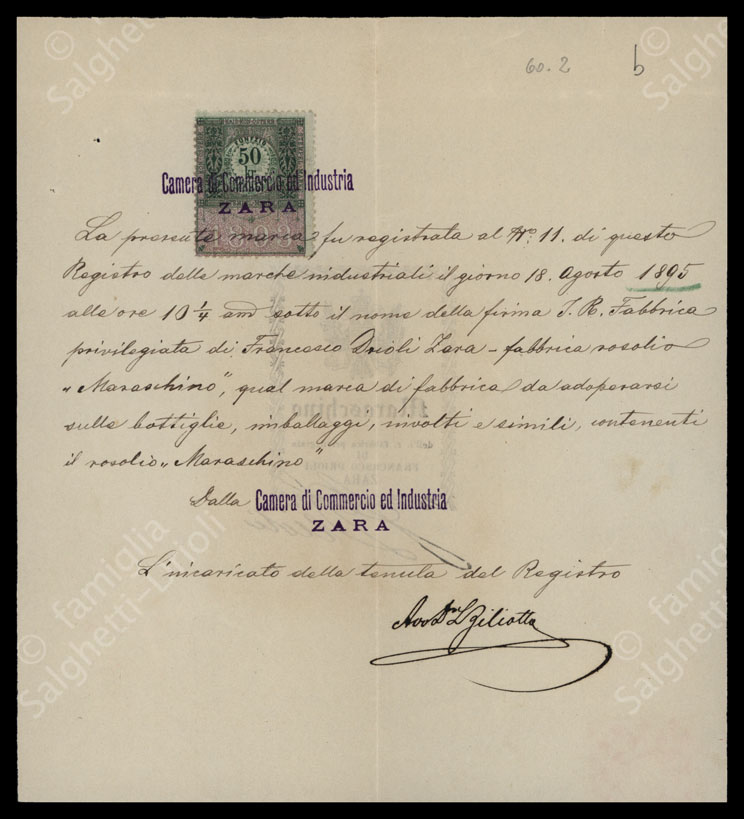 60.2 b
© famiglia Salghetti-Drioli
50
Camera di Commercio ed Industria
ZARA
La presente marca fu registrata al No. 11. di questo
Registro delle marche industriali il giorno 18. Agosto 1895
alle ore 10 1/4 am sotto il nome della firma I. R. Fabbrica
privilegiata di Francesco Drioli Zara - fabbrica rosolio
„Maraschino", qual marca di fabbrica da adoperarsi
sulle bottiglie, imballaggi, involti e simili, contenenti
il rosolio „Maraschino"
Dalla Camera di Commercio ed Industria
ZARA
L'incaricato della tenuta del Registro
Avv Dr L Ziliotto